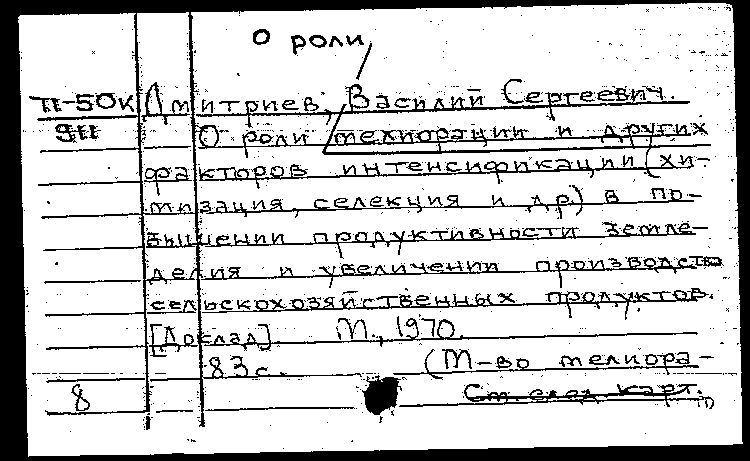 О роли
П-50к Дмитриев, Василий Сергеевич.
9П О роли мелиорации и других
факторов интенсификации (хи-
мизация, селекция и др.) в по-
вышении продуктивности земле-
делия и увеличении производства
сельскохозяйственных продуктов.
[Доклад]. М., 1970.
83 с. (М-во мелиора-
8 См. след. карт.